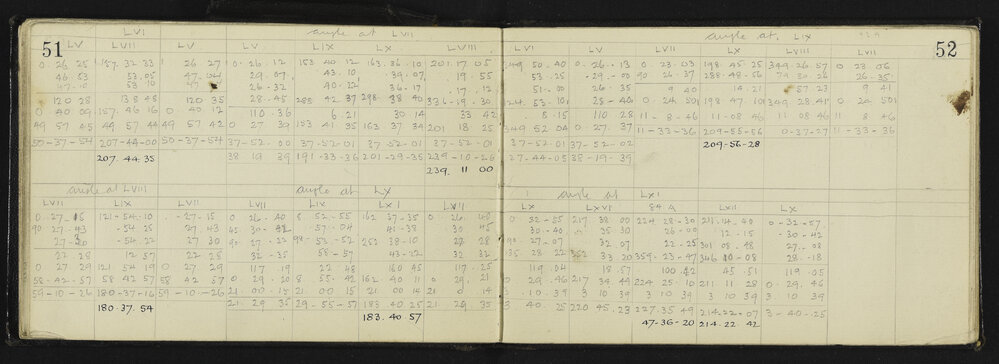 51
LVI angle at LVII
LV LVII LV LV LIX LX LVIII
0 26 25 157 32 33 26 27 0 - 26 . 12 153 40 12 163 . 36 . 10 201 . 17 05
46 . 53 53 . 05 29 . 07 43 . 10 39 . 07 19 . 55
53 10 26 - 32 40 - 22 36 - 17 17 . 12
120 28 138 48 120 35 28 - 45 285 42 37 298 . 38 40 336 - 19 . 30
0 40 09 157 . 46 16 0 40 12 110 . 36 6 . 21 30 14 33 42
49 57 45 49 57 44 49 57 42 0 27 39 153 41 35 163 37 34 201 18 25
50 - 37 - 54 207 - 44 - 00 50 - 37 - 54 37 - 52 - 00 37 - 52 - 01 37 . 52 - 01 37 - 52 - 01
207 . 44 . 35 38 19 39 191 - 33 - 36 201 - 29 - 35 239 - 10 - 26
239 . 11 00
angle at LVIII angle at LX
LVII LIX LVII LVII LIX LXI LVII
0 . 27 - 15 121 - 54 . 10 - 27 - 15 0 26 - 40 8 . 52 - 55 162 37 - 35 0 . 26 45
90 27 - 43 - 54 25 27 . 43 45 30 - 42 - 57 - 04 41 - 38 30 45
- 54 . 22 27 30 90 - 27 - 22 98 - 53 - 52 252 38 - 10 27 28
22 - 28 12 57 22 28 32 - 35 58 - 57 43 - 22 32 32
0 27 29 121 54 19 0 27 29 117 . 19 22 48 160 45 117 . 25
58 - 42 - 57 58 42 57 58 42 57 0 29 - 20 8 55 - 42 162 - 40 11 0 29 . 21
59 - 10 - 26 180 - 37 - 16 59 - 10 - 26 21 . 00 - 15 21 00 15 21 00 14 21 0 . 14
180 . 37 . 54 21 . 29 35 29 - 55 - 57 183 40 25 21 29 35
183 . 40 . 57
52
angle at LIX
LVI LVIII LV LVII LX LVIII LVII
349 50 . 40 0 - 26 . 13 0 23 . 03 198 . 45 . 25 349 . 26 - 57 0 23 . 06
53 - 25 - 29 - 00 90 26 - 37 288 - 48 - 56 79 30 - 26 26 - 35
51 - 00 26 - 35 9 40 14 - 21 57 - 23 9 41
124 . 53 - 10 25 - 46 0 - 24 50 198 - 47 . 10 349 28 - 41 0 24 50
8 - 15 110 28 11 - 8 - 46 11 - 08 46 11 08 46 11 8 46
349 52 04 0 - 27 37 11 - 33 - 36 209 - 55 - 56 0 - 37 - 27 11 - 33 - 36
37 - 52 - 01 37 - 52 - 02 209 - 56 - 28
27 - 44 - 05 38 - 19 - 39
angle at LXI
LX LXVI 84.A LXII LX
0 32 - 55 217 38 00 224 28 - 30 211 . 14 - 40 0 - 32 - 57
30 - 40 35 30 26 - 00 12 - 15 - 30 - 42
90 - 27 - 07 32 07 22 - 25 301 08 - 48 27 - 08
135 28 22 33 20 359 - 23 - 47 346 10 - 08 28 - 18
119 . 04 18 . 57 100 42 45 . 51 119 . 05
0 29 - 46 217 34 44 224 25 . 10 211 . 11 28 0 . 29 . 46
3 10 39 3 10 39 3 10 39 3 10 39 3 10 39
3 40 25 220 45 . 23 227 . 35 49 214 - 22 - 07 3 - 40 - 25
47 - 36 - 20 214 - 22 . 42